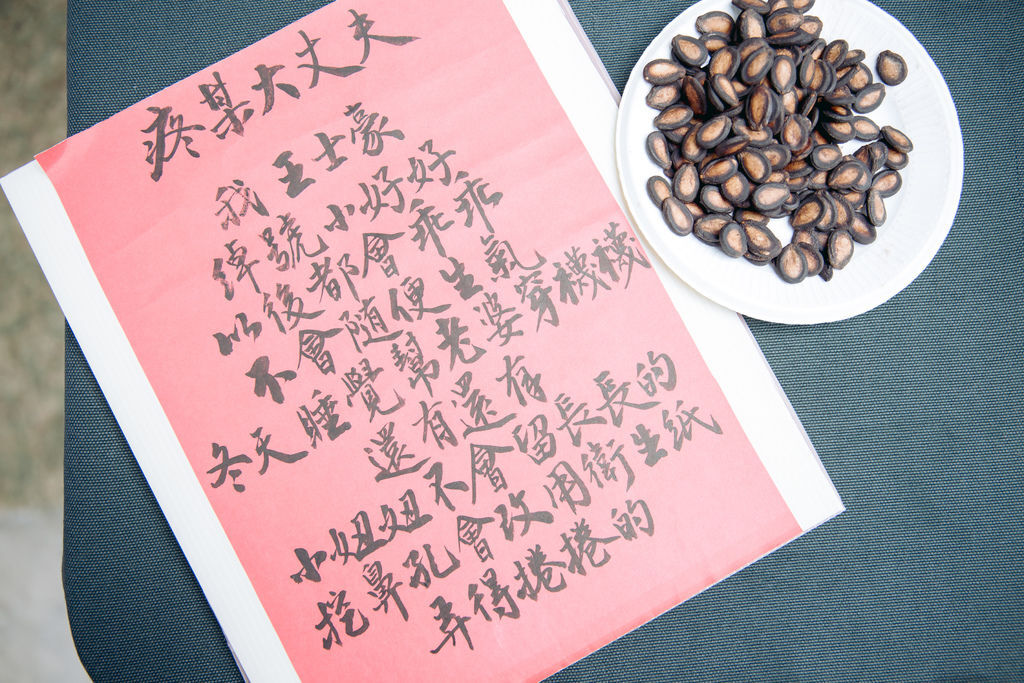 疼某大丈夫
我王士豪
綽號小好好
以後都會乖乖
不會隨便生氣
冬天睡覺幫老婆穿襪襪
還有還有
小妞妞不會留長長的
挖鼻孔會改用衛生紙
弄得捲捲的